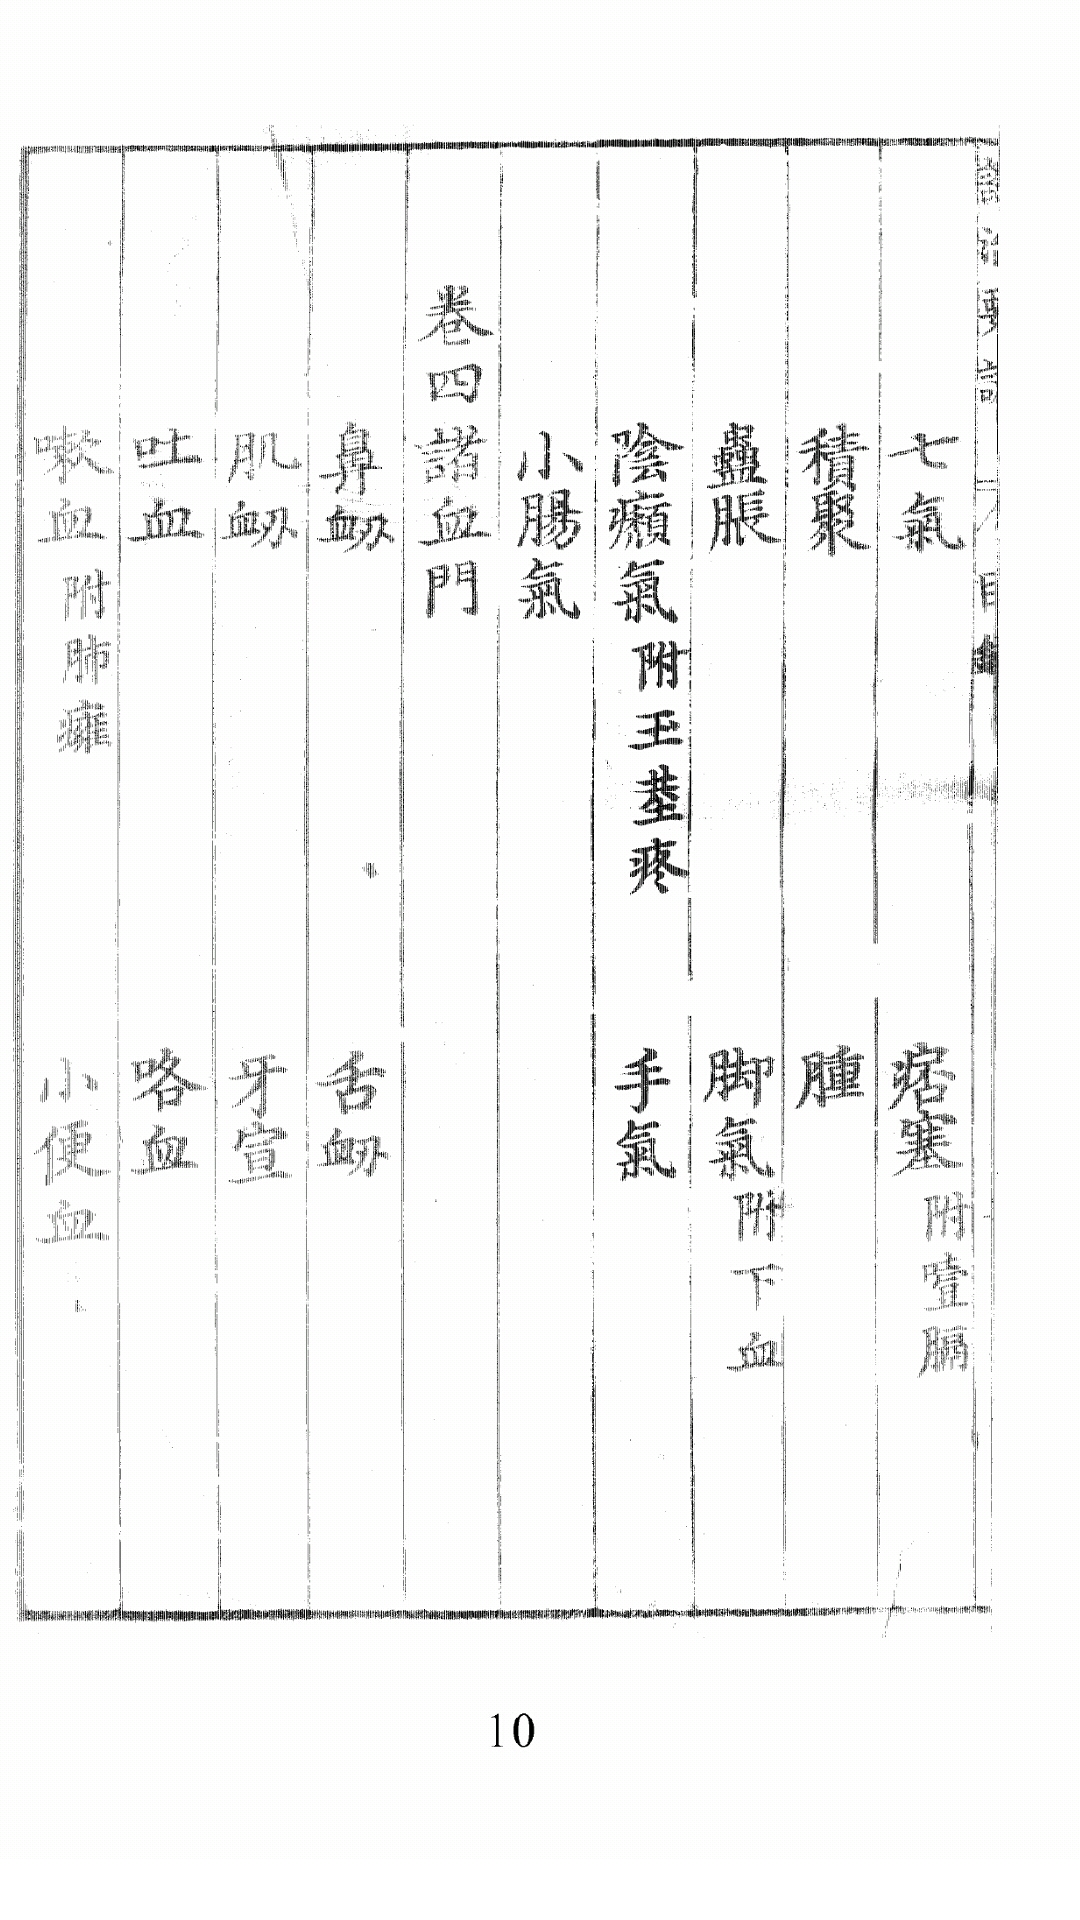 目錄
七氣 痞塞附噎膈
積聚 腫
蠱脹 脚氣附下血
陰癩氣附玉莖疼 手氣
小腸氣
卷四諸血門
鼻衂 舌衂
肌衂 牙宣
吐血 咯血
嗽血附肺癕 小便血
10